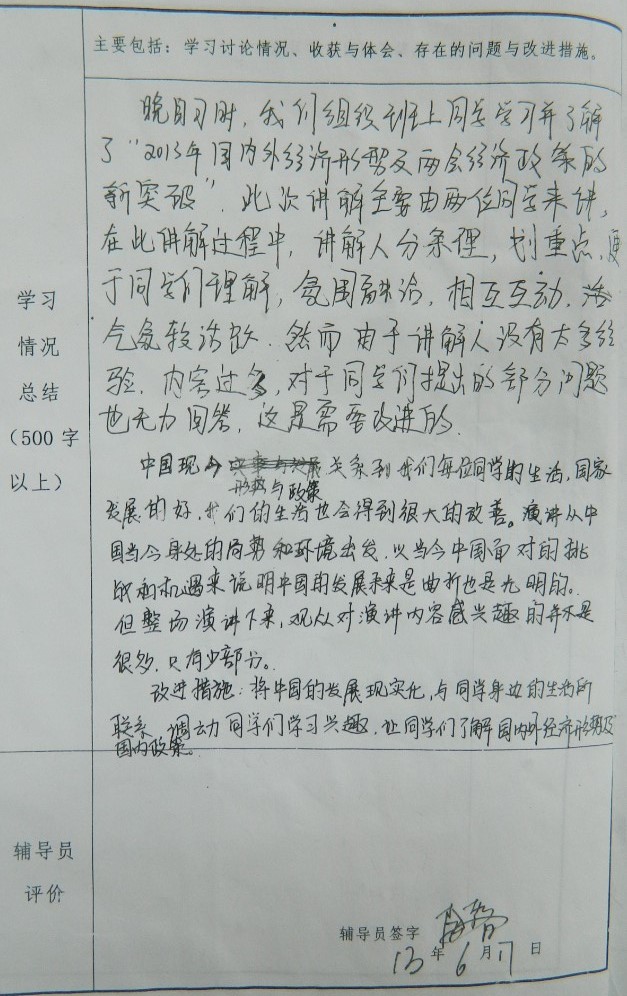 主要包括：学习讨论情况、收获与体会、存在的问题与改进措施。
学习
情况
总结
（500字
以上）
晚自习时，我们组织班上同学学习并了解
了“2013年国内外经济形势及两会经济政策的
新突破”．此次讲解主要由两位同学来讲，
在此讲解过程中，讲解人分条理，划重点，便
于同学们理解，氛围融洽，相互互动，
气氛较活跃．然而由于讲解人没有太多经
验．内容过多，对于同学们提出的部分问题
也无力回答，这是需要改进的．
中国现今形势与政策关系到我们每位同学的生活，国家
发展的好，我们的生活也会得到很大的改善。演讲从中
国当今身处的局势和环境出发，以当今中国面对的挑
战和机遇来说明中国的发展未来是曲折也是光明的。
但整场演讲下来，观众对演讲内容感兴趣的并不是
很多，只有少部分。
改进措施：将中国的发展现实化，与同学身边的生活所
联系，调动同学们学习兴趣，让同学们了解国内外经济形势及
国内政策。
辅导员
评价
辅导员签字
13年6月17日